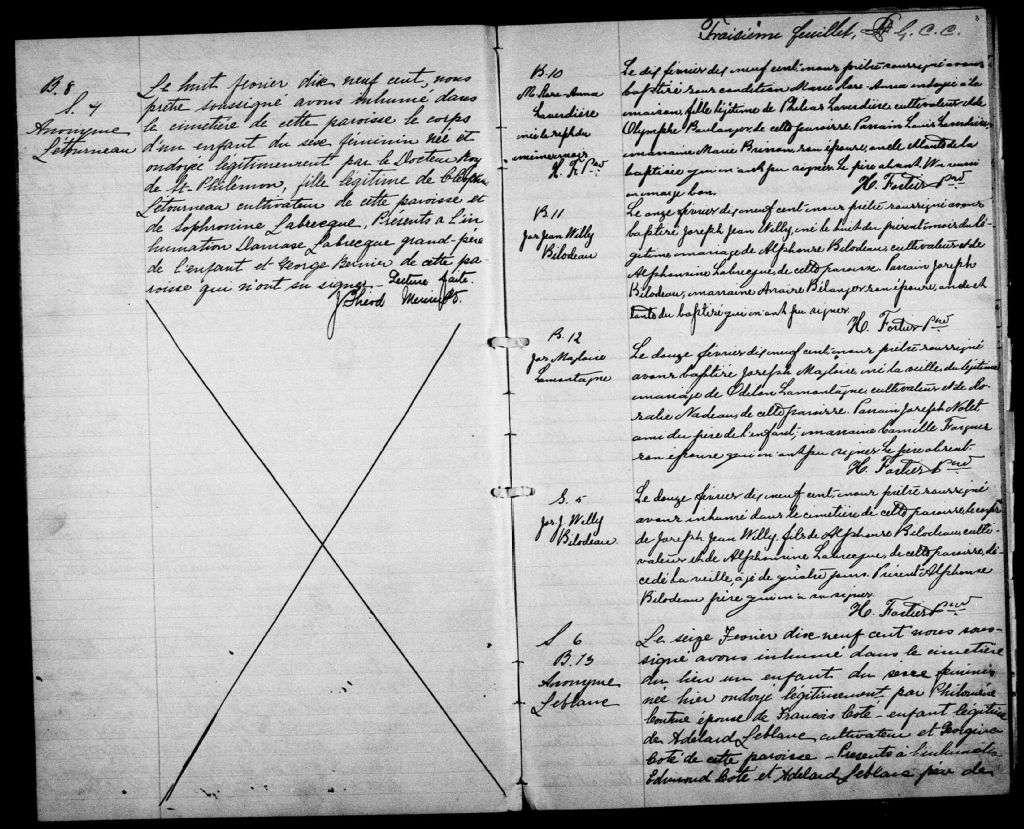 B. 8
S. 4
Anonyme
Letourneau
Le huit fevrier dix neuf cent, nous
prêtre soussigné avons inhumé dans
le cimetière de cette paroisse le corps
d'un enfant du sexe féminin née et
ondoyé légitimement par le Docteur Roy
de St. Philémon, fille légitime de
Letourneau cultivateur de cette paroisse et
de Sophronine Labrecque, Présents à l'in
humation Damase Labrecque grand-père
de l'enfant et George Bernier de cette pa
roisse qui n'ont su signer - Lecture faite.
3
Fraisième feuillet, G. C. C.
B. 10
M. Rose-Anna
Laverdière
H. F. Ptre
Le dix février dix neuf cent: nous prêtre soussigné avons
baptisé sous condition Marie Rose Anna ondoyée à la
maison, fille légitime de Philias Laverdière cultivateur et de
Olymphe Boulanger, de cette paroisse. Parrain Louis Laverdière,
marraine Marie Brisson, son épouse, oncle et tante de la
baptisée qui n'ont pu signer. Le père absent.
en marge bon.
H. Fortier Ptre
B. 11
Jos Jean Willy
Bilodeau
Le onze février dix neuf cent: nous prêtre soussigné avons
baptisé Joseph Jean Willy, né le huit du présent mois du lé
gitime mariage de Alphonse Bilodeau, cultivateur et de
Alphonsine Labrecque, de cette paroisse. Parrain Joseph
Bilodeau, marraine Bélanger, son épouse, oncle et
tante du baptisé qui n'ont pu signer.
H. Fortier Ptre
B. 12
Jos. Majloire
Lamontagne
Le douze février dix neuf cent: nous prêtre soussigné
avons baptisé Joseph Majloire, né la veille du légitime
mariage de Odilon Lamontagne, cultivateur et de Ro
salie Nadeau, de cette paroisse. Parrain Joseph Nolet
ami du père de l'enfant; marraine Camille
son épouse qui n'ont pu signer. Le père absent.
H. Fortier Ptre
S. 5
Jos. J. Willy
Bilodeau
Le douze février dix neuf cent: nous prêtre soussigné
avons inhumé dans le cimetière de cette paroisse, le corps
de Joseph Jean Willy, fils de Alphonse Bilodeau culti
vateur et de Alphonsine Labrecque, de cette paroisse, dé
cédé la veille, âgé de quatre jours. Présent: Alphonse
Bilodeau père, qui n'a su signer.
H. Fortier Ptre
S 6
B. 13
Anonyme
Leblanc
Le seize Fevrier dix neuf cent nous sous-
signé avons inhumé dans le cimetière
du lieu un enfant du sexe feminin
née hier ondoyé légitimement par Philomène
épouse de Francois Coté - enfant légitime
de Adelard Leblanc, cultivateur et Georgina
Coté de cette paroisse - Présents à l'inhumatio
Edmond Coté et Adelard Leblanc père de